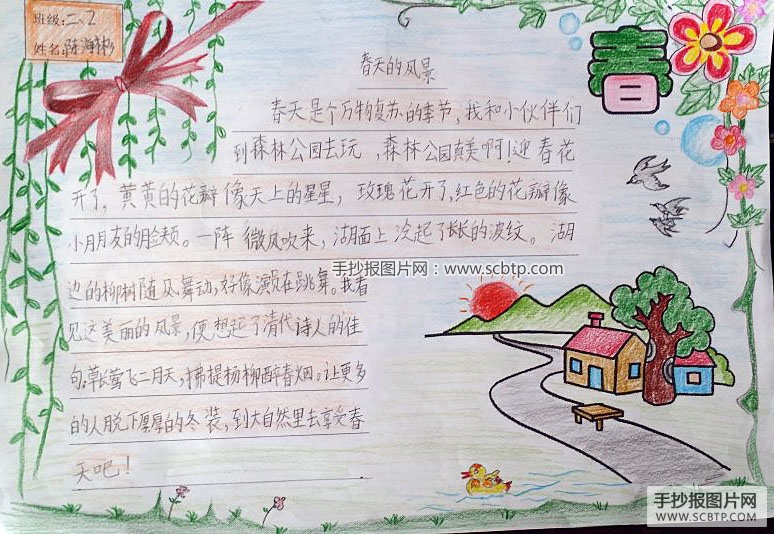 班级:二、2
姓名:陈海彬
春
春天的风景
春天是个万物复苏的季节,我和小伙伴们
到森林公园去玩,森林公园真美啊!迎春花
开了,黄黄的花瓣像天上的星星,玫瑰花开了,红色的花瓣像
小朋友的脸颊。一阵微风吹来,湖面上泛起了长长的波纹。湖
手抄报图片网:www.scbtp.com
边的柳树随风舞动,好像演员在跳舞。我看
见这美丽的风景,便想起了清代诗人的佳
句:草长莺飞二月天,拂提杨柳醉春烟。让更多
的人脱下厚厚的冬装,到大自然里去享受春
天吧!
手抄报图片网
WWW.SCBTP.COM